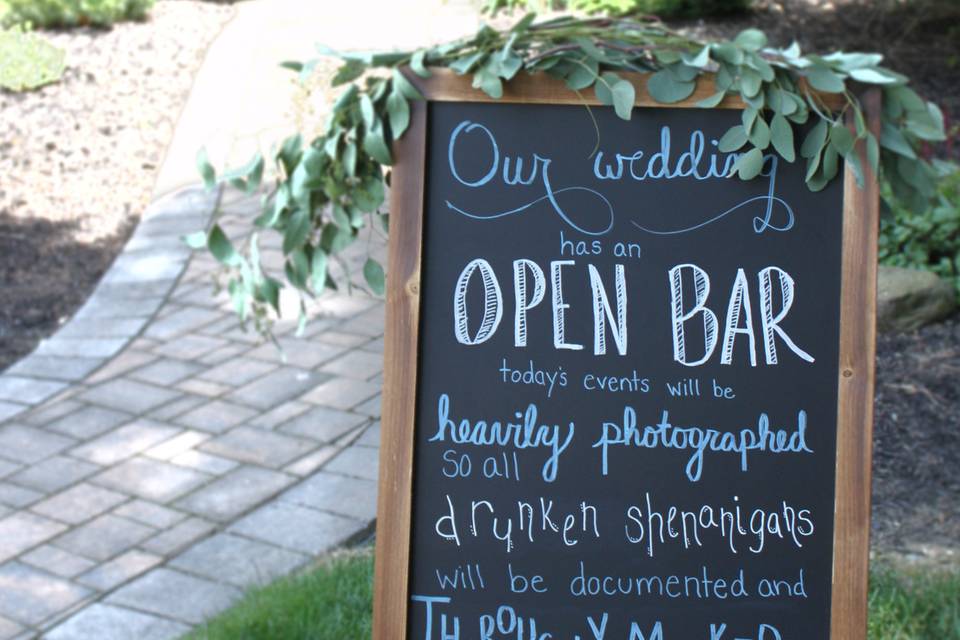 Our wedding
has an
OPEN BAR
today's events will be
heavily photographed
so all
drunken shenanigans
will be documented and